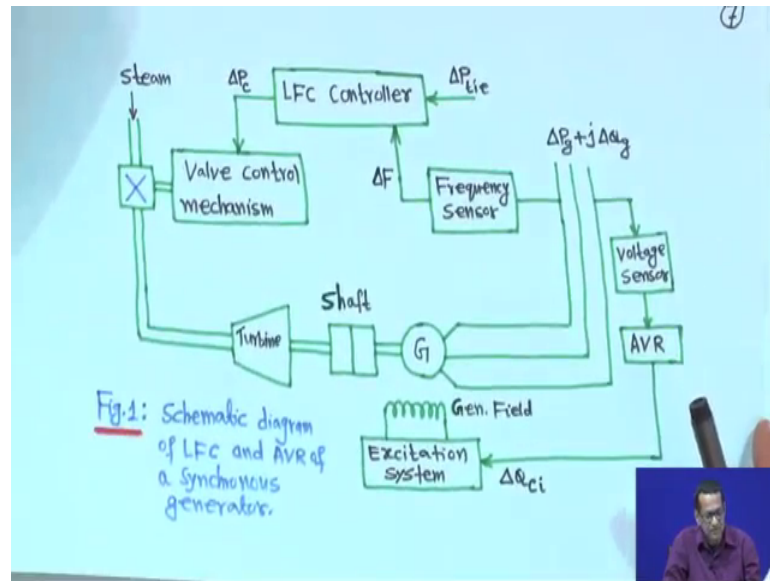 7
steam
ΔPc
LFC Controller
ΔPtie
Valve control
mechanism
ΔF
Frequency
Sensor
ΔPg+jΔQg
Voltage
Sensor
AVR
Shaft
Turbine
G
Gen. Field
Excitation
system
ΔQci
Fig.1: Schematic diagram
of LFC and AVR of
a synchronous
generator.